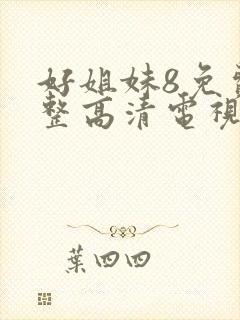 好姐妹8免費
整高清電視
葉四四